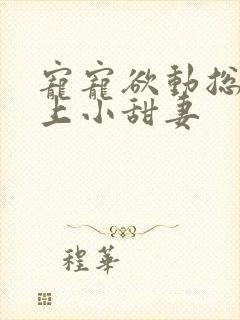 寵寵欲動總
上小甜妻
程華